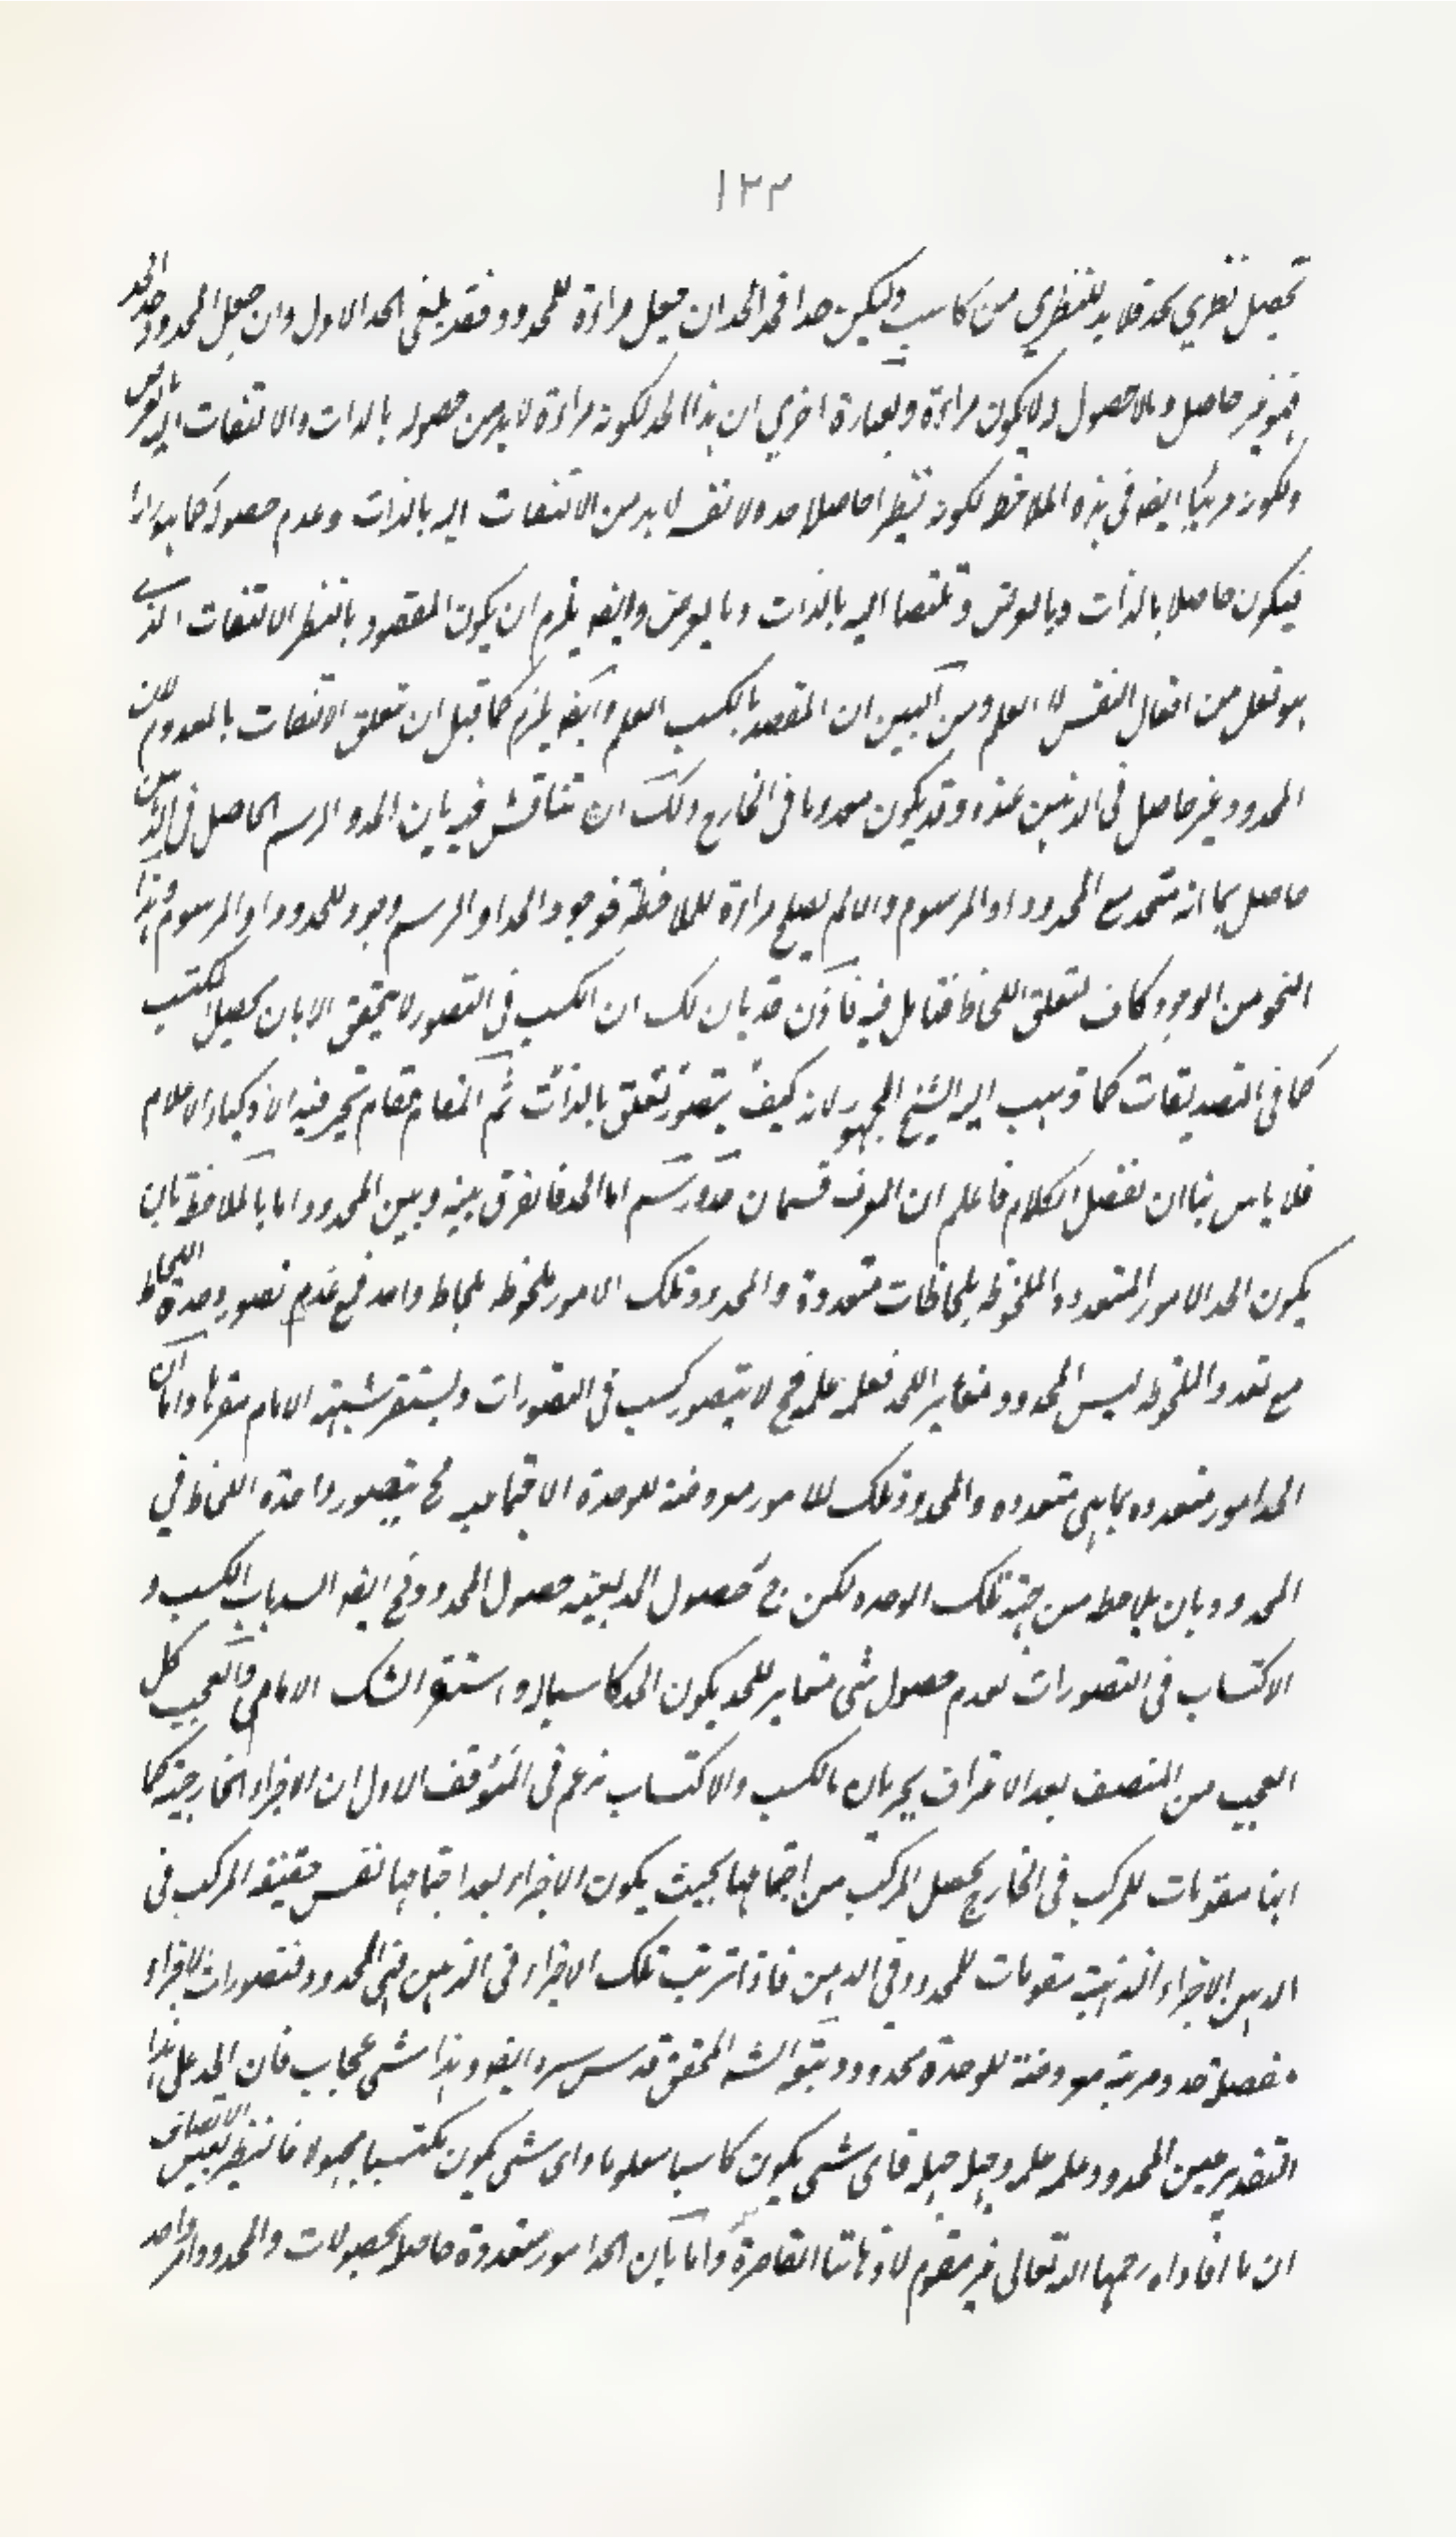 ١٢٣
تحصيل نظري بحد فلا بد للنظري من كاسب وليكن حدا فحد الحد ان جعل مراءة للمحدود فقد يلغى الحد الاول وان جعل المحدود حد الحد
فهو غير حاصل وبلا حصول لا يكون مراءة وبعبارة اخرى ان هذا الحد لكونه مراءة لا بد من حصوله بالذات والالتفات اليه بالعرض
ولكونه مرئيا ايضه في هذه الملاحظة لكونه نظريا حاصلا حده لا نفسه لا بد من الالتفات اليه بالذات وعدم حصوله كما هو
فيكون حاصلا بالذات وبالعرض وملتفتا اليه بالذات وبالعرض وايضه يلزم ان يكون المقصود بالنظر الالتفات الذي
هو فعل من افعال النفس لا العلم ومن البين ان المقصد بالكسب العلم وايضه يلزم كما قيل ان تعلق الالتفات بالمعدوم لان
المحدود غير حاصل في الذهن عنده وقد يكون معدوما في الخارج ولك ان تناقش فيه بان الحد والرسم الحاصل في الذهن
حاصل بما انه متحد مع المحدود او المرسوم والا لم يصلح مراءة للملاحظة فوجود الحد او الرسم وجود للمحدود او المرسوم وهذا
النحو من الوجود كاف لتعلق اللحاظ فتامل فيه فاذن قد بان لك ان الكسب في التصور لا يتحقق الا بان يحصل المكتسب
كما في التصديقات كما ذهب اليه الشيخ الجمهور لانه كيف يتصور تعلق بالذات ثم المقام مقام تحير فيه الاذكياء الاعلام
فلا باس بنا ان نفصل الكلام فاعلم ان المعرف قسمان حد ورسم اما الحد فالفرق بينه وبين المحدود اما بالملاحظة بان
يكون الحد الامور المتعددة الملحوظة بلحاظات متعددة والمحدود تلك الامور ملحوظة بلحاظ واحد فمع عدم تصور وحدة اللحاظ
مع تعدد الملحوظ ليس المحدود مغايرا للحد فعلمه علمه فح لا يتصور كسب في التصورات ويستقر شبهة الامام مقرها واما ان
الحد امور متعدده بما هي متعدده والمحدود تلك الامور معروضة للوحدة الاجتماعيه فح يتصور واحدة اللحاظ في
المحدود بان يلاحظ من جهة تلك الوحده لكن ح حصول الحد بعينه حصول المحدود فح ايضه انسد باب الكسب و
الاكتساب في التصورات لعدم حصول شى متغاير للحد يكون الحد كاسبا له واستقر الشك الامامي والعجب كل
العجب من المنصف بعد الاعتراف بجريان الكسب والاكتساب زعم في الموقف الاول ان الاجزاء الخارجية كما
انها مقومات للمركب في الخارج يحصل المركب من اجتماعها بحيث يكون الاجزاء بعد اجتماعها نفس حقيقة المركب في
الذهن الاجزاء الذهنية مقومات للمحدود في الذهن فاذا ترتيب تلك الاجزاء في الذهن فهي المحدود فتصورات الاجزاء
مفصلة حد ومرتبة معروضة للوحدة محدود وتبعه الشه المحقق قدس سره ايضه وهذا شى عجاب فان الحد على هذا
التقدير عين المحدود علمه علمه وجهله جهله فاى شى يكون كاسبا معلوما واى شى يكون مكتسبا مجهولا فانظر بعين الانصاف
ان ما افاداه رحمهما الله تعالى غير مقوم لاذهاننا القاصرة واما بان الحد امور متعددة حاصلة بحصولات والمحدود امر واحد